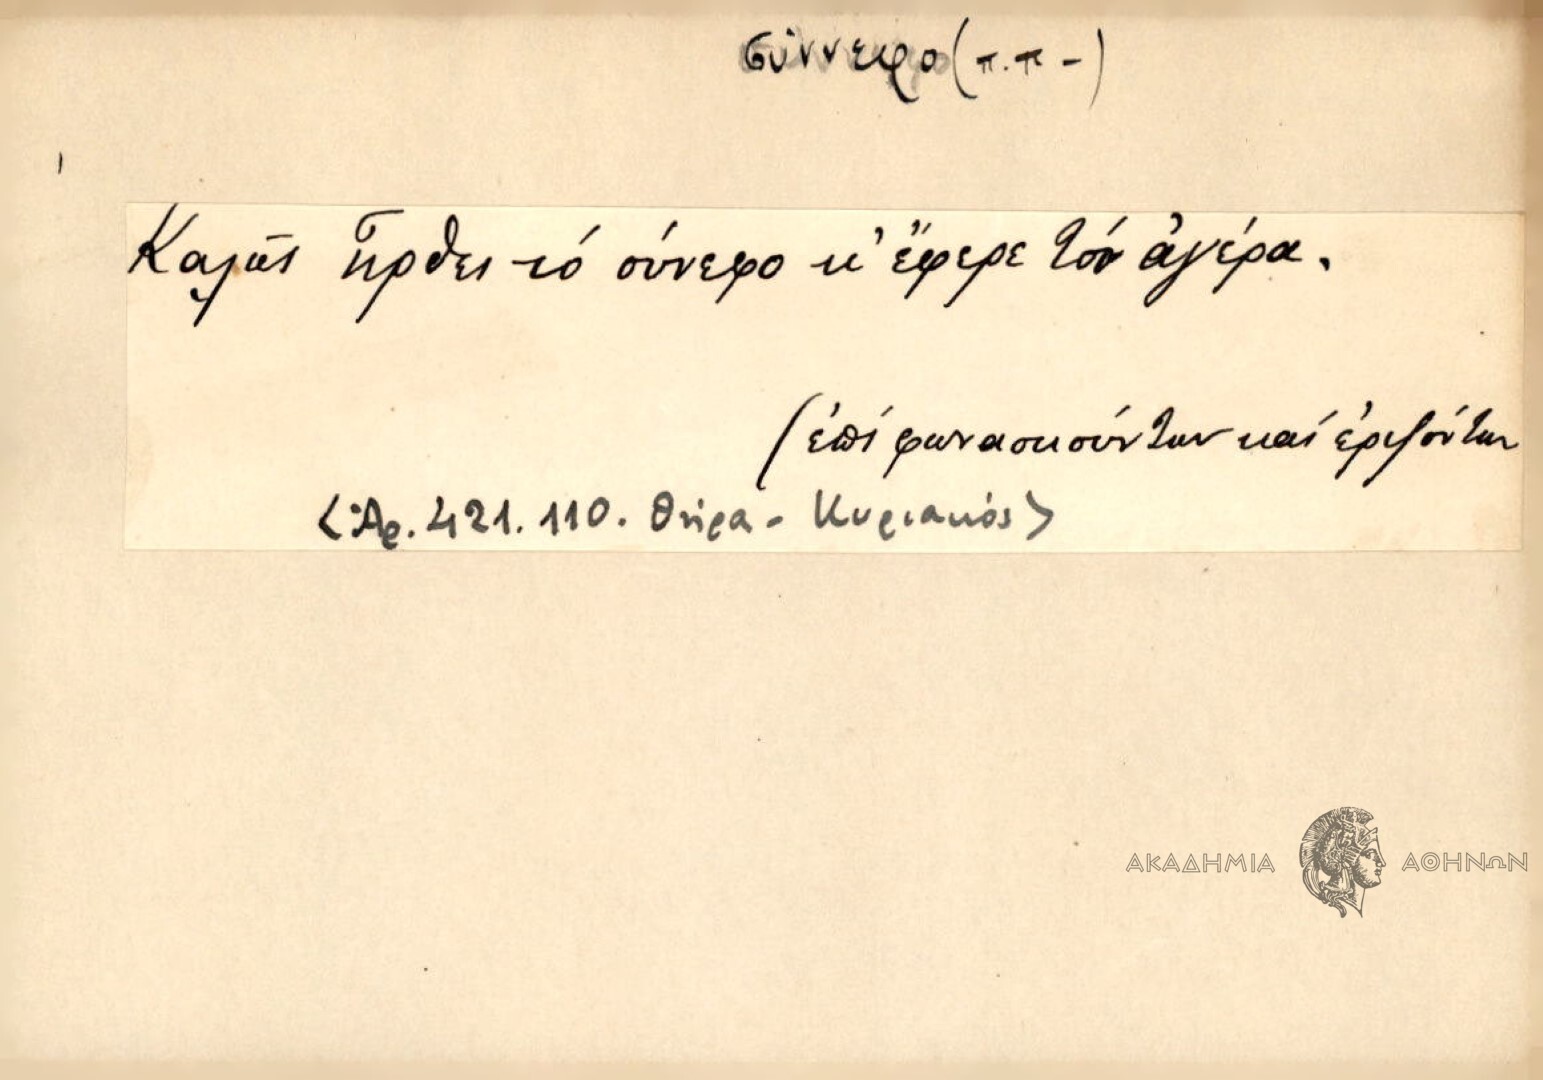 σύννεφο (π.π -)
Καλῶς ἦρθες τό σύνεφο κ' ἔφερε τόν ἀγέρα.
(ἐπί φωνασκούντων καί ἐριζόντων
<Ἀρ. 421. 110. Θήρα - Κυριακός>
ΑΚΑΔΗΜΙΑ ΑΘΗΝΩΝ